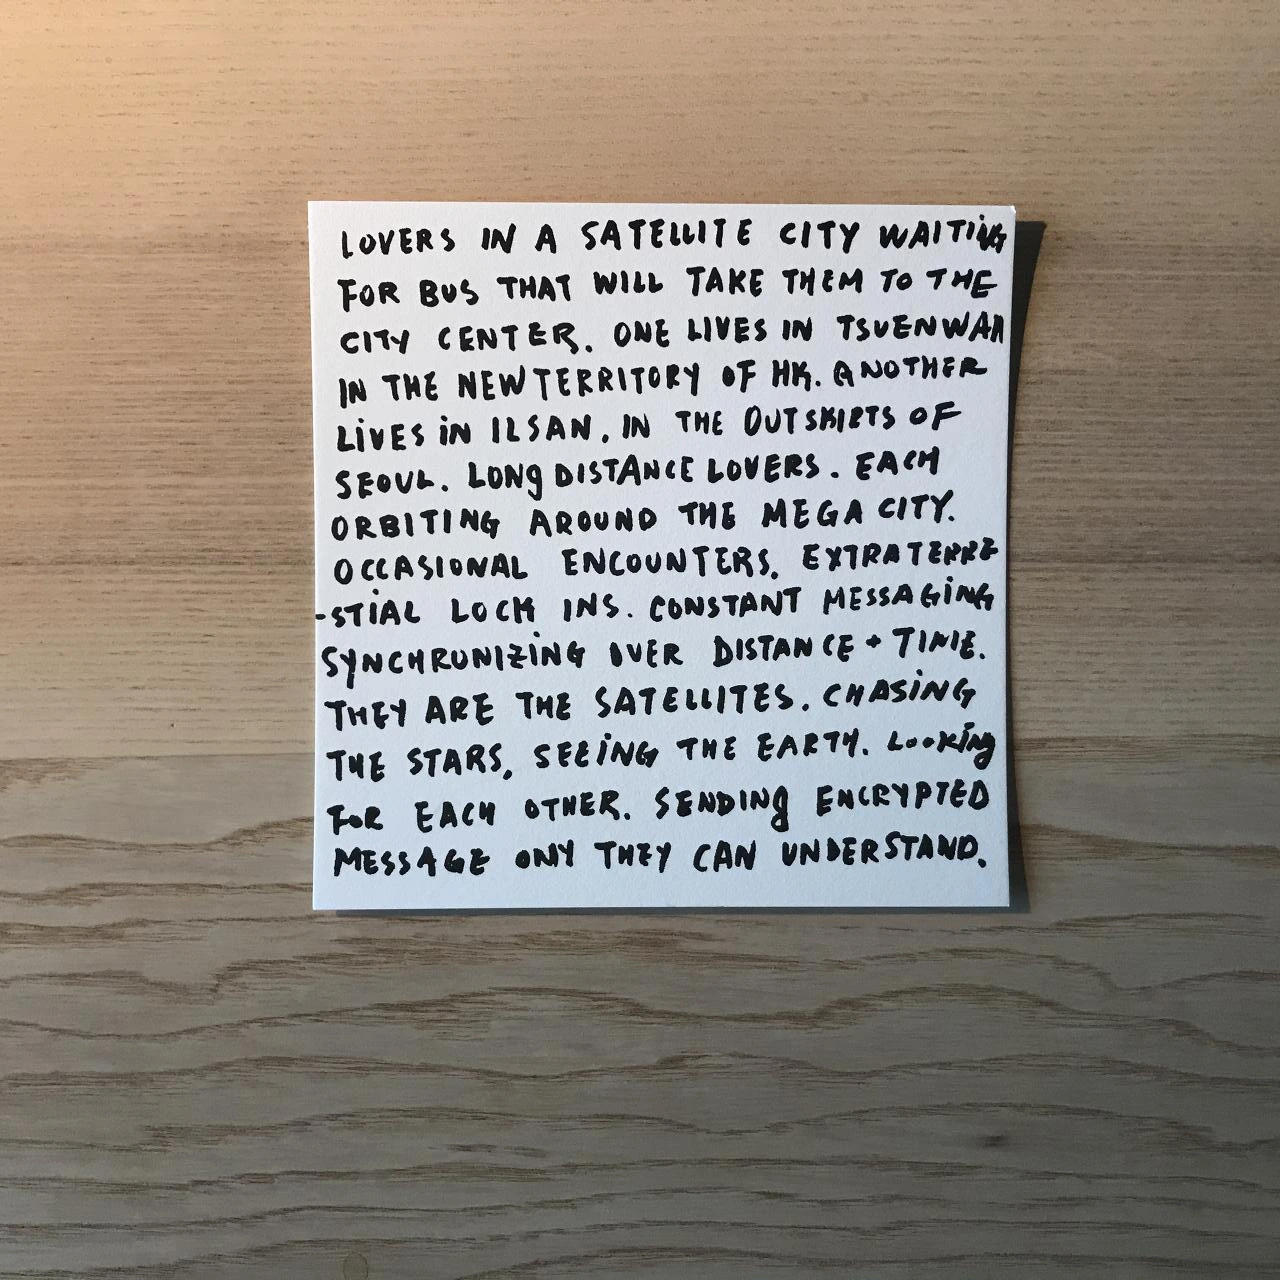 LOVERS IN A SATELLITE CITY WAITING
FOR BUS THAT WILL TAKE THEM TO THE
CITY CENTER. ONE LIVES IN TSUENWAN
IN THE NEW TERRITORY OF HK. ANOTHER
LIVES IN ILSAN, IN THE OUTSKIRTS OF
SEOUL. LONG DISTANCE LOVERS. EACH
ORBITING AROUND THE MEGA CITY.
OCCASIONAL ENCOUNTERS. EXTRATERRE
-STIAL LOCK INS. CONSTANT MESSAGING
SYNCHRONIZING OVER DISTANCE + TIME.
THEY ARE THE SATELLITES. CHASING
THE STARS, SEEING THE EARTH. LOOKING
FOR EACH OTHER. SENDING ENCRYPTED
MESSAGE ONLY THEY CAN UNDERSTAND.